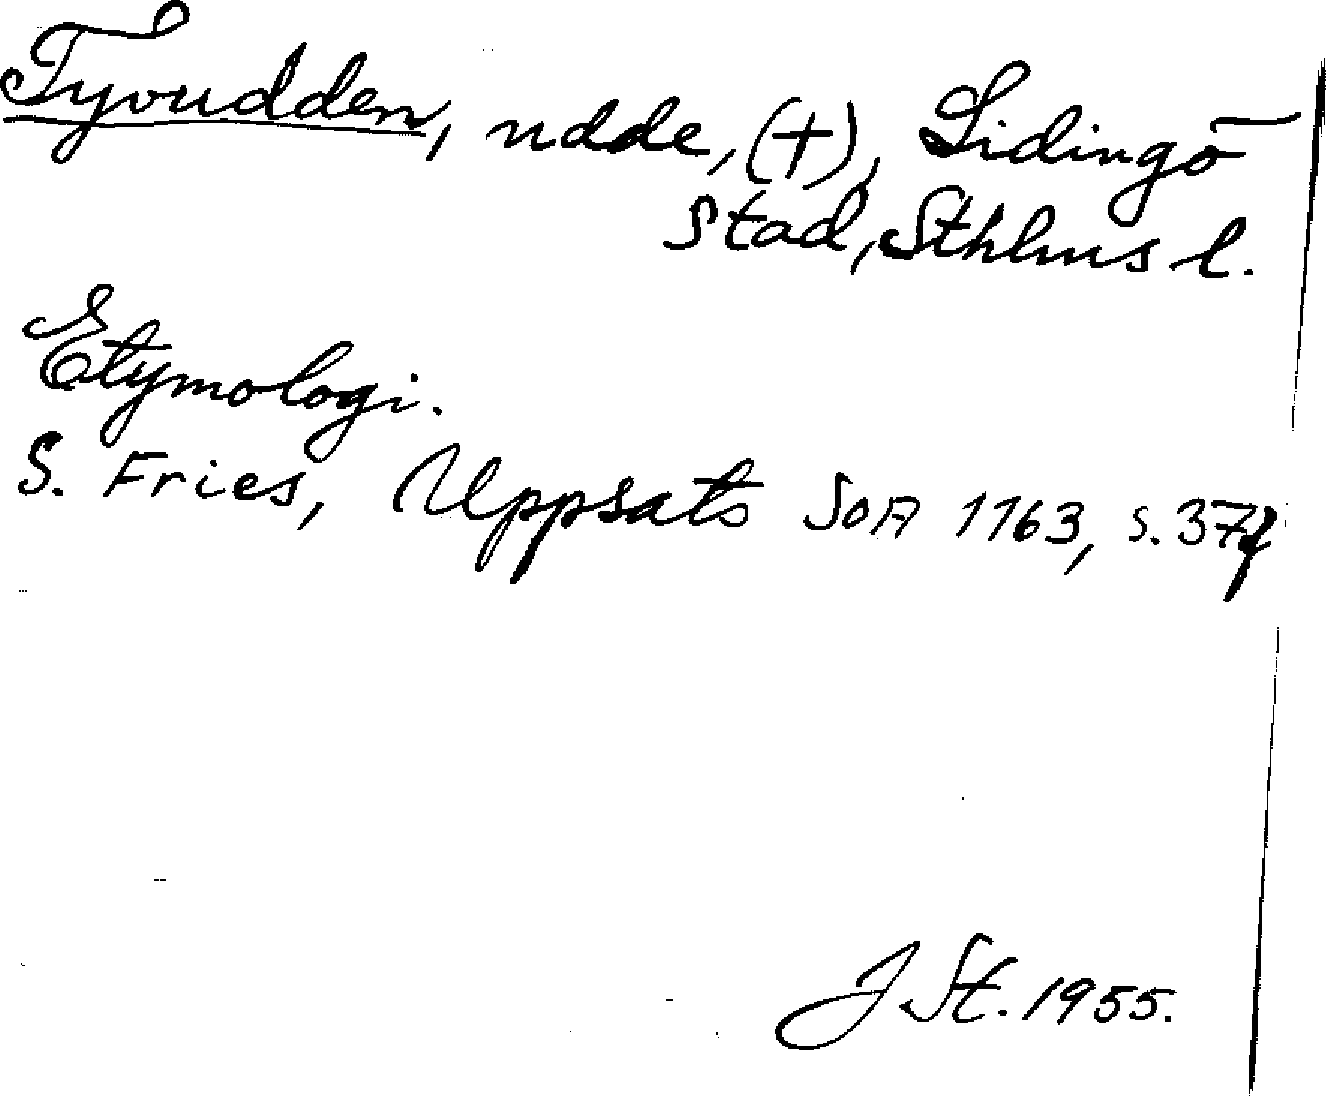 Tyvudden, udde, (†), Lidingö
stad, Sthlms l.
Etymologi.
S. Fries, Uppsats SOA 1163, s. 37f
J St. 1955.